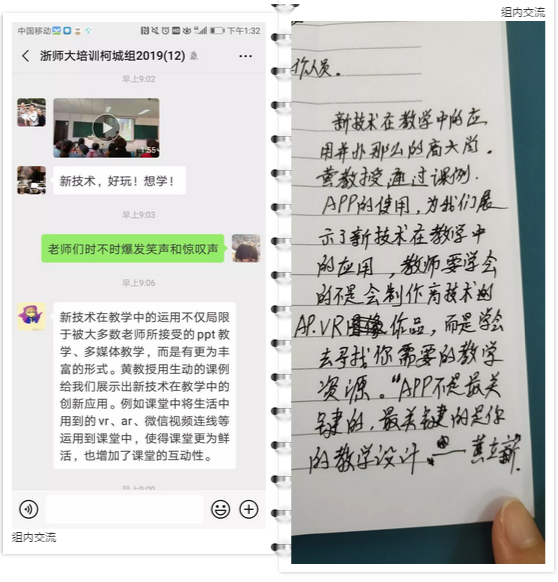 组内交流
中国移动
下午1:32
浙师大培训柯城组2019(12)
早上9:02
1:55
新技术，好玩！想学！
早上9:03
老师们时不时爆发笑声和惊叹声
早上9:06
新技术在教学中的运用不仅局限
于被大多数老师所接受的ppt教
学、多媒体教学，而是有更为丰
富的形式。黄教授用生动的课例
给我们展示出新技术在教学中的
创新应用。例如课堂中将生活中
用到的vr、ar、微信视频连线等
运用到课堂中，使得课堂更为鲜
活，也增加了课堂的互动性。
组内交流
作人员。
新技术在教学中的应
用并非那么的高大尚.
黄教授通过课例.
APP的使用，为我们展
示了新技术在教学中
的应用，教师要学会
的不是会制作高技术的
AP.VR 作品，而是学会
去寻找你需要的教学
资源。“APP不是最关
键的，最关键的是你
的教学设计. — 黄立新.